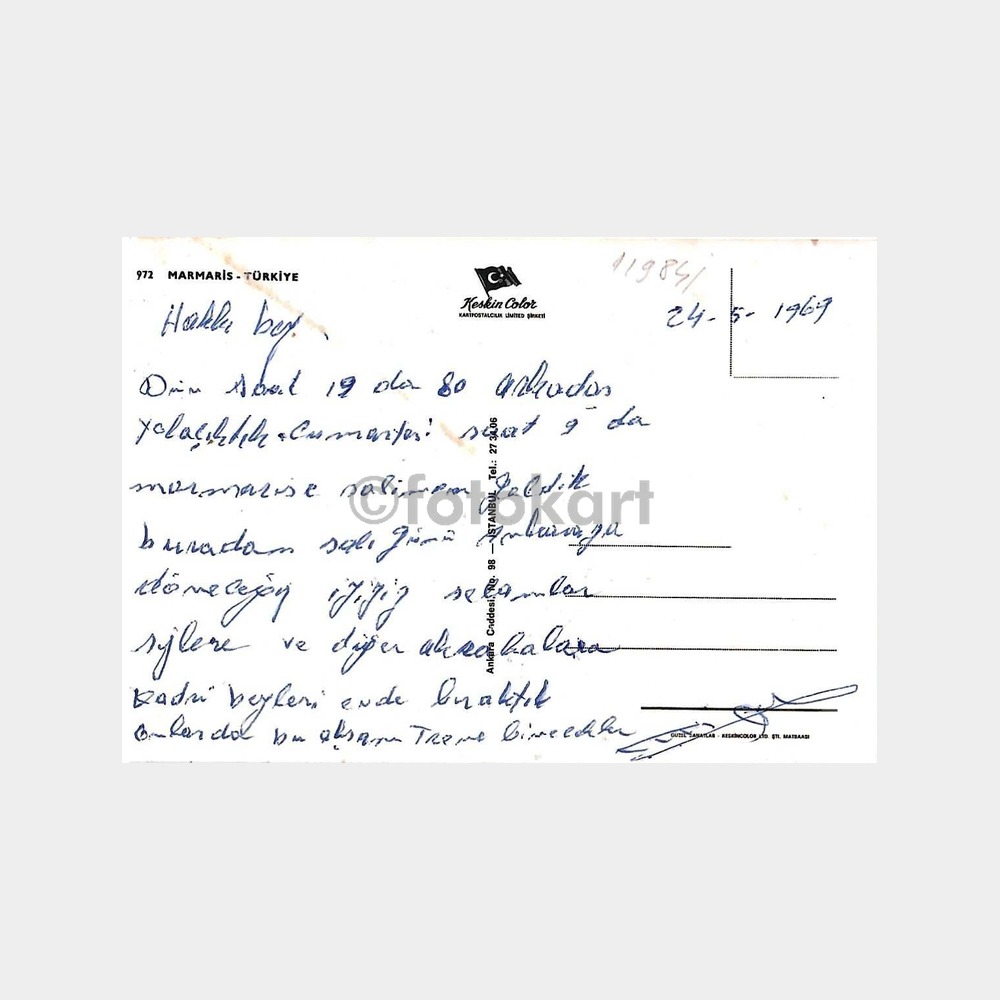 972 MARMARİS - TÜRKİYE
Keskin Color
KARTPOSTALCILIK LİMİTED ŞİRKETİ
11984
24-5-1969
Hakkı bey.
Dün saat 19 da 80 arkadaş
yolaçıktık. Cumartesi saat 9 da
marmarise salimen geldik
buradan salı günü Ankaraya
döneceğiz iyiyiz selamlar
sizlere ve diğer akrabalara
Kadri beyleri evde bıraktık
onlarda bu akşam Trene binecekler
Ankara Caddesi, No. 98 — İSTANBUL Tel.: 27 34 06
GÜZEL SANATLAR - KESKİNCOLOR LTD. ŞTİ. MATBAASI
©fotokart